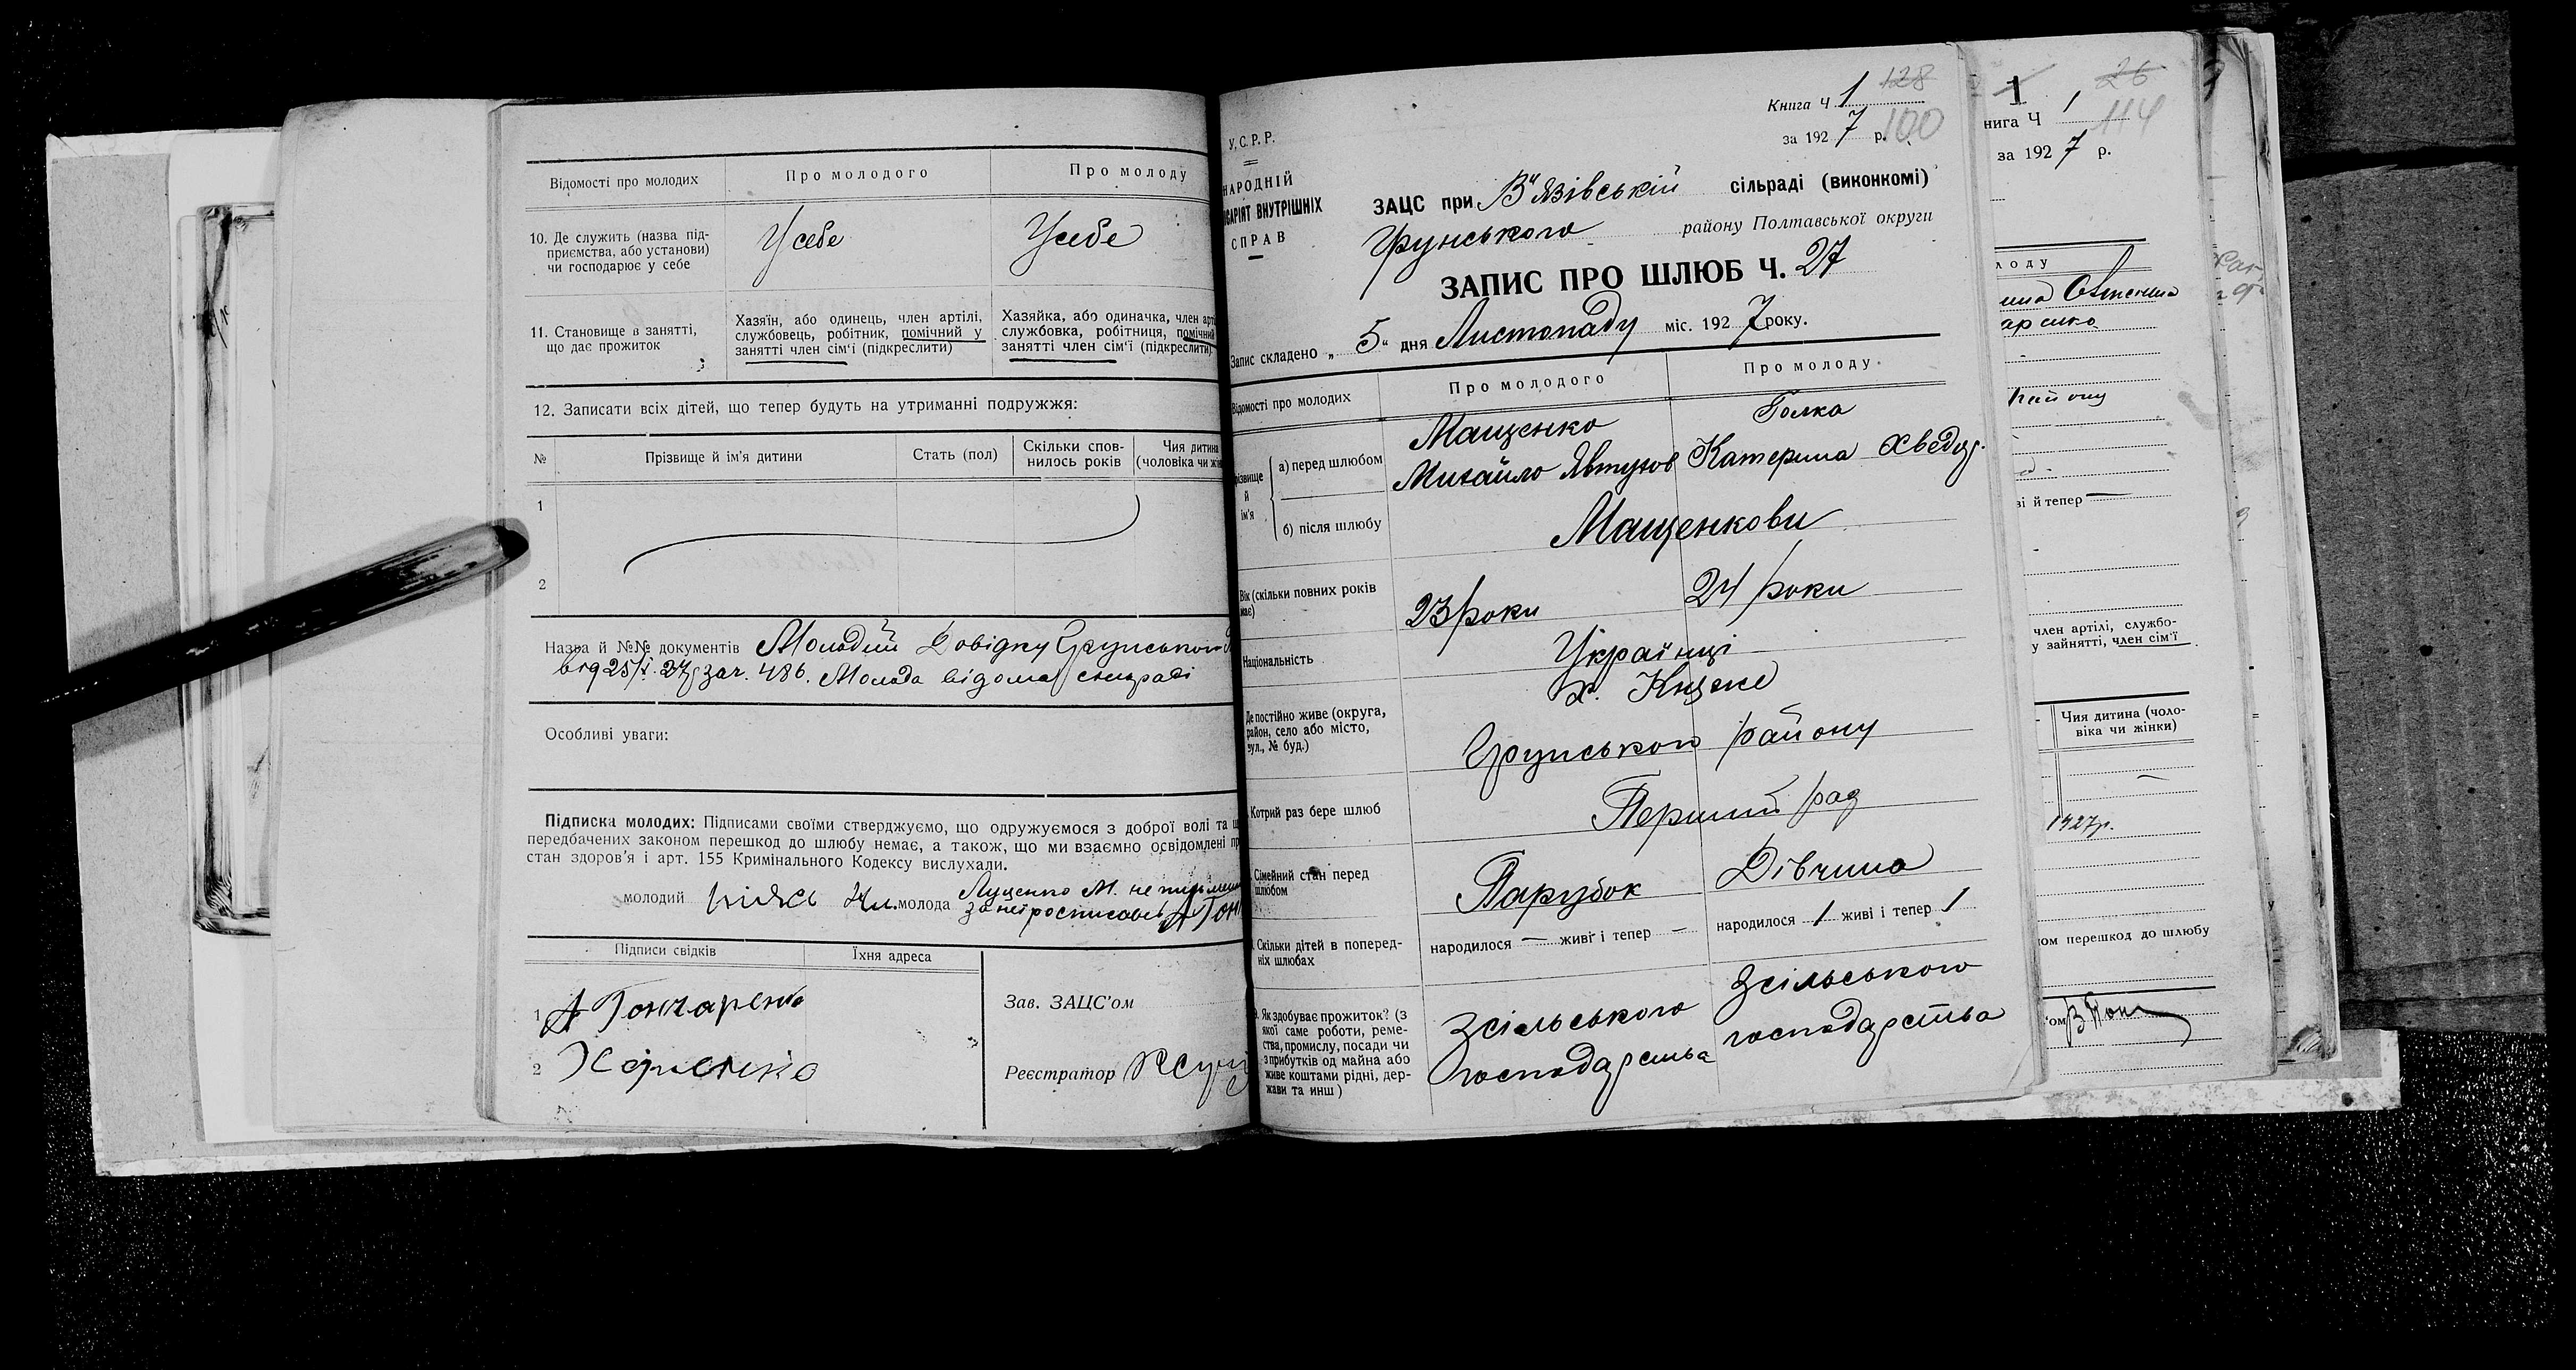 Відомості про молодих
Про молодого
Про молоду
10. Де служить (назва під-
приємства, або установи)
чи господарює у себе
У себе
У себе
11. Становище в занятті,
що дає прожиток
Хазяїн, або одинець, член артілі,
службовець, робітник, помічний у
занятті член сім'ї (підкреслити)
Хазяйка, або одиначка, член арт
службовка, робітниця, помічний
занятті член сім'ї (підкреслити)
12. Записати всіх дітей, що тепер будуть на утриманні подружжя:
№
Прізвище й ім'я дитини
Стать (пол)
Скільки спов-
нилось років
Чия дитина
(чоловіка чи жін
1
2
Назва й №№ документів Молодий Довідку Грунського
від 25/X 27р за ч. 486. Молода відома сільраді
Особливі уваги:
Підписка молодих: Підписами своїми стверджуємо, що одружуємося з доброї волі та щ
передбачених законом перешкод до шлюбу немає, а також, що ми взаємно освідомлені пр
стан здоров'я і арт. 155 Кримінального Кодексу вислухали.
молодий
молода Луценко М. не письмен
за неї росписавсь А Гон
Підписи свідків
Їхня адреса
1 А Гончаренко
2
Зав. ЗАЦС'ом
Реєстратор
Книга Ч 1 128
за 1927 р. 100
У.С.Р.Р.
НАРОДНІЙ
САРІЯТ ВНУТРІШНІХ
СПРАВ
ЗАЦС при В'язівській сільраді (виконкомі)
Грунського району Полтавської округи
ЗАПИС ПРО ШЛЮБ Ч. 27
Запис складено „5" дня Листопаду міс. 1927 року.
Відомості про молодих
Про молодого
Про молоду
різвище
й
ім'я
а) перед шлюбом
Мащенко
Михайло Явтухов
Голка
Катерина Хведор.
б) після шлюбу
Мащенкови
Вік (скільки повних років
має)
23 роки
24 роки
Національність
Українці
Де постійно живе (округа,
район, село або місто,
вул., № буд.)
х.
Грунського району
Котрий раз бере шлюб
Перший раз
Сімейний стан перед
шлюбом
Парубок
Дівчина
Скільки дітей в поперед-
ніх шлюбах
народилося — живі і тепер —
народилося 1 живі і тепер 1
Як здобуває прожиток? (з
якої саме роботи, реме-
ства, промислу, посади чи
з прибутків од майна або
живе коштами рідні, дер-
жави та инш)
Зсільського
господарства
Зсільського
господарства
1 26
нига Ч 1 114
за 1927 р.
лоду
району
ві й тепер —
член артілі, службо-
у зайнятті, член сім'ї
Чия дитина (чоло-
віка чи жінки)
1927р.
ом перешкод до шлюбу
'ом